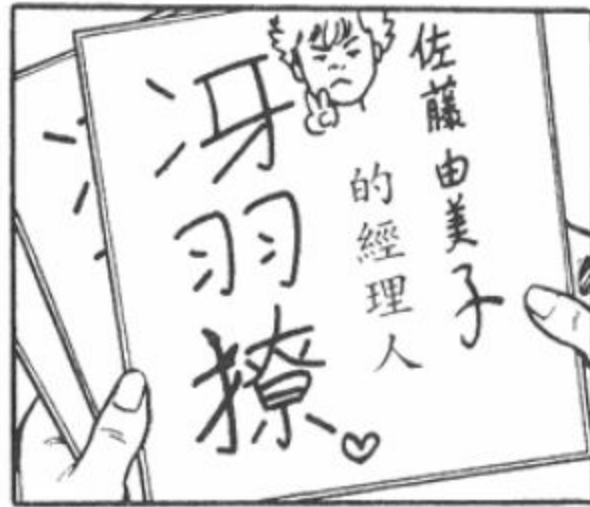 佐藤由美子
的經理人
冴羽獠